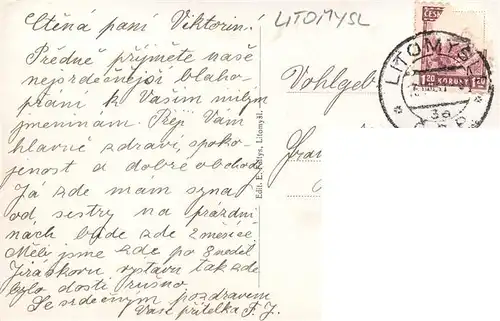 Ctěná paní Viktorin!
Předně přijměte naše
nejsrdečnější blaho-
přání k Vašim milým
jmeninám. Přeji Vám
hlavně zdraví, spoko-
jenost a dobré obchody
Já zde mám syna
od sestry na prázdni
nách bude zde 2 měsíce
Měli jsme zde po 8 neděl
Jiráskovu výstavu tak zde
bylo dosti rušno.
Se srdečným pozdravem
Vaše přítelka F. J.
Edit. E. Foltys, Litomyšl.
LITOMYSL
Vohlgeb
ČESK
1.20 KORUNY 1.20
LITOMYŠL
3a